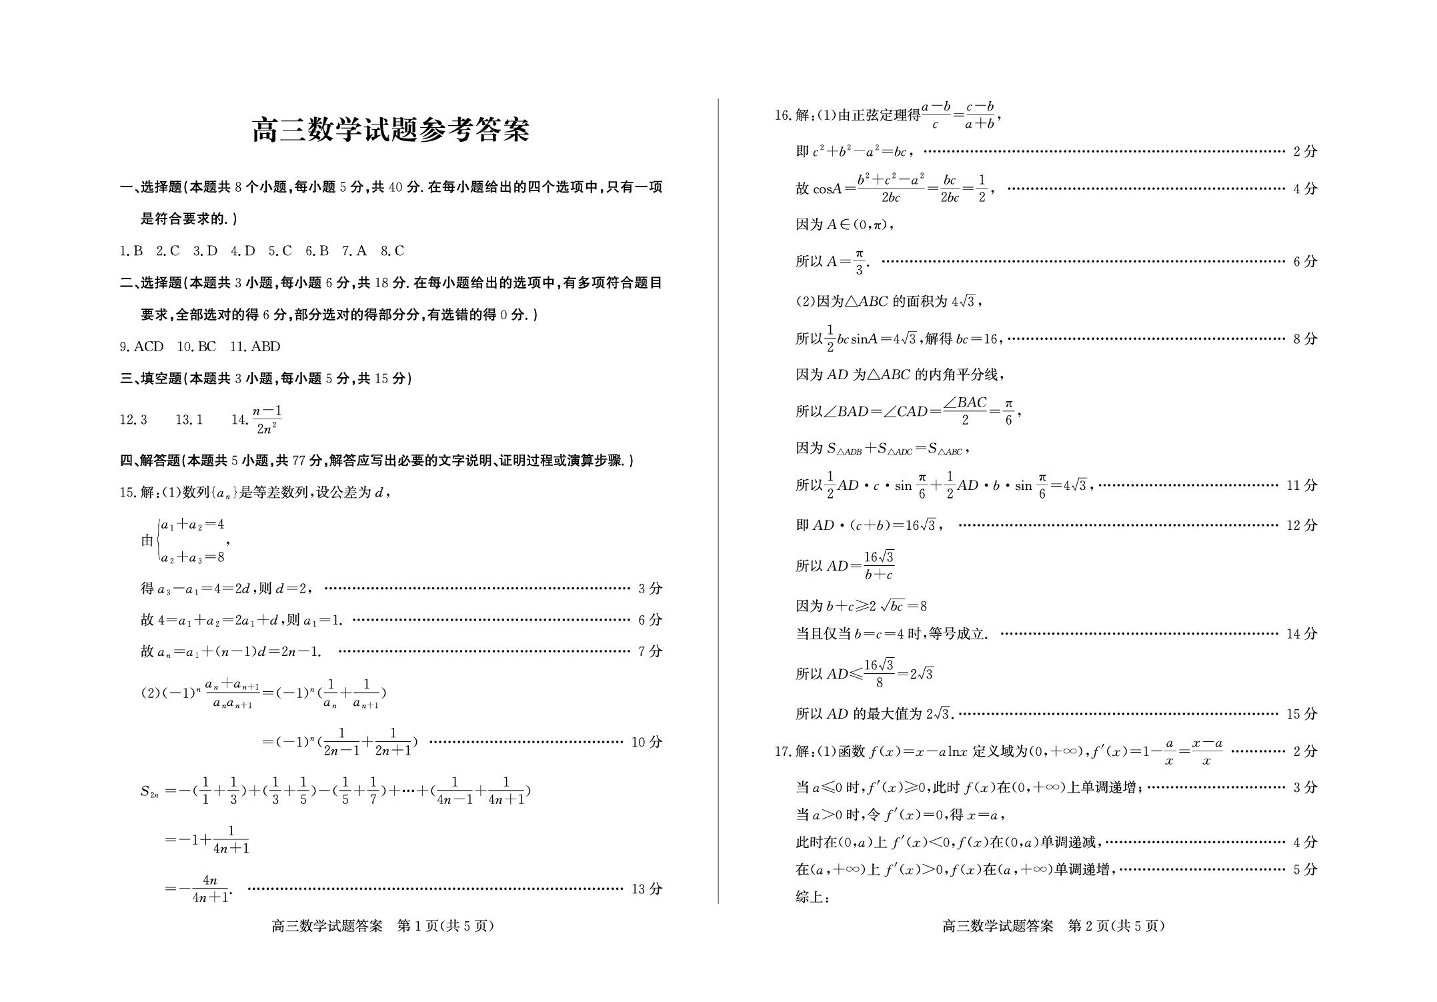 高三数学试题参考答案
一、选择题(本题共 8 个小题,每小题 5 分,共 40 分. 在每小题给出的四个选项中,只有一项
是符合要求的. )
1. B 2. C 3. D 4. D 5. C 6. B 7. A 8. C
二、选择题(本题共 3 小题,每小题 6 分,共 18 分. 在每小题给出的选项中,有多项符合题目
要求,全部选对的得 6 分,部分选对的得部分分,有选错的得 0 分. )
9. ACD 10. BC 11. ABD
三、填空题(本题共 3 小题,每小题 5 分,共 15 分)
12. 3 13. 1 14. \frac{n-1}{2n^2}
四、解答题(本题共 5 小题,共 77 分,解答应写出必要的文字说明、证明过程或演算步骤. )
15. 解:(1)数列{a_n}是等差数列,设公差为 d,
由{a_1+a_2=4
a_2+a_3=8,
得 a_3-a_1=4=2d,则 d=2, …… 3 分
故 4=a_1+a_2=2a_1+d,则 a_1=1. …… 6 分
故 a_n=a_1+(n-1)d=2n-1. …… 7 分
(2)(-1)^n \frac{a_n+a_{n+1}}{a_n a_{n+1}}=(-1)^n(\frac{1}{a_n}+\frac{1}{a_{n+1}})
=(-1)^n(\frac{1}{2n-1}+\frac{1}{2n+1}) …… 10 分
S_{2n}=-(\frac{1}{1}+\frac{1}{3})+(\frac{1}{3}+\frac{1}{5})-(\frac{1}{5}+\frac{1}{7})+…+(\frac{1}{4n-1}+\frac{1}{4n+1})
=-1+\frac{1}{4n+1}
=-\frac{4n}{4n+1}. …… 13 分
高三数学试题答案 第 1 页(共 5 页)
16. 解:(1)由正弦定理得\frac{a-b}{c}=\frac{c-b}{a+b},
即 c^2+b^2-a^2=bc, …… 2 分
故 cosA=\frac{b^2+c^2-a^2}{2bc}=\frac{bc}{2bc}=\frac{1}{2}, …… 4 分
因为 A∈(0,π),
所以 A=\frac{π}{3}. …… 6 分
(2)因为△ABC 的面积为 4√3,
所以\frac{1}{2}bcsinA=4√3,解得 bc=16, …… 8 分
因为 AD 为△ABC 的内角平分线,
所以∠BAD=∠CAD=\frac{∠BAC}{2}=\frac{π}{6},
因为 S_{△ADB}+S_{△ADC}=S_{△ABC},
所以\frac{1}{2}AD·c·sin\frac{π}{6}+\frac{1}{2}AD·b·sin\frac{π}{6}=4√3, …… 11 分
即 AD·(c+b)=16√3, …… 12 分
所以 AD=\frac{16√3}{b+c}
因为 b+c≥2√bc=8
当且仅当 b=c=4 时,等号成立. …… 14 分
所以 AD≤\frac{16√3}{8}=2√3
所以 AD 的最大值为 2√3. …… 15 分
17. 解:(1)函数 f(x)=x-alnx 定义域为(0,+∞),f′(x)=1-\frac{a}{x}=\frac{x-a}{x} …… 2 分
当 a≤0 时,f′(x)≥0,此时 f(x)在(0,+∞)上单调递增; …… 3 分
当 a>0 时,令 f′(x)=0,得 x=a,
此时在(0,a)上 f′(x)<0,f(x)在(0,a)单调递减, …… 4 分
在(a,+∞)上 f′(x)>0,f(x)在(a,+∞)单调递增, …… 5 分
综上:
高三数学试题答案 第 2 页(共 5 页)